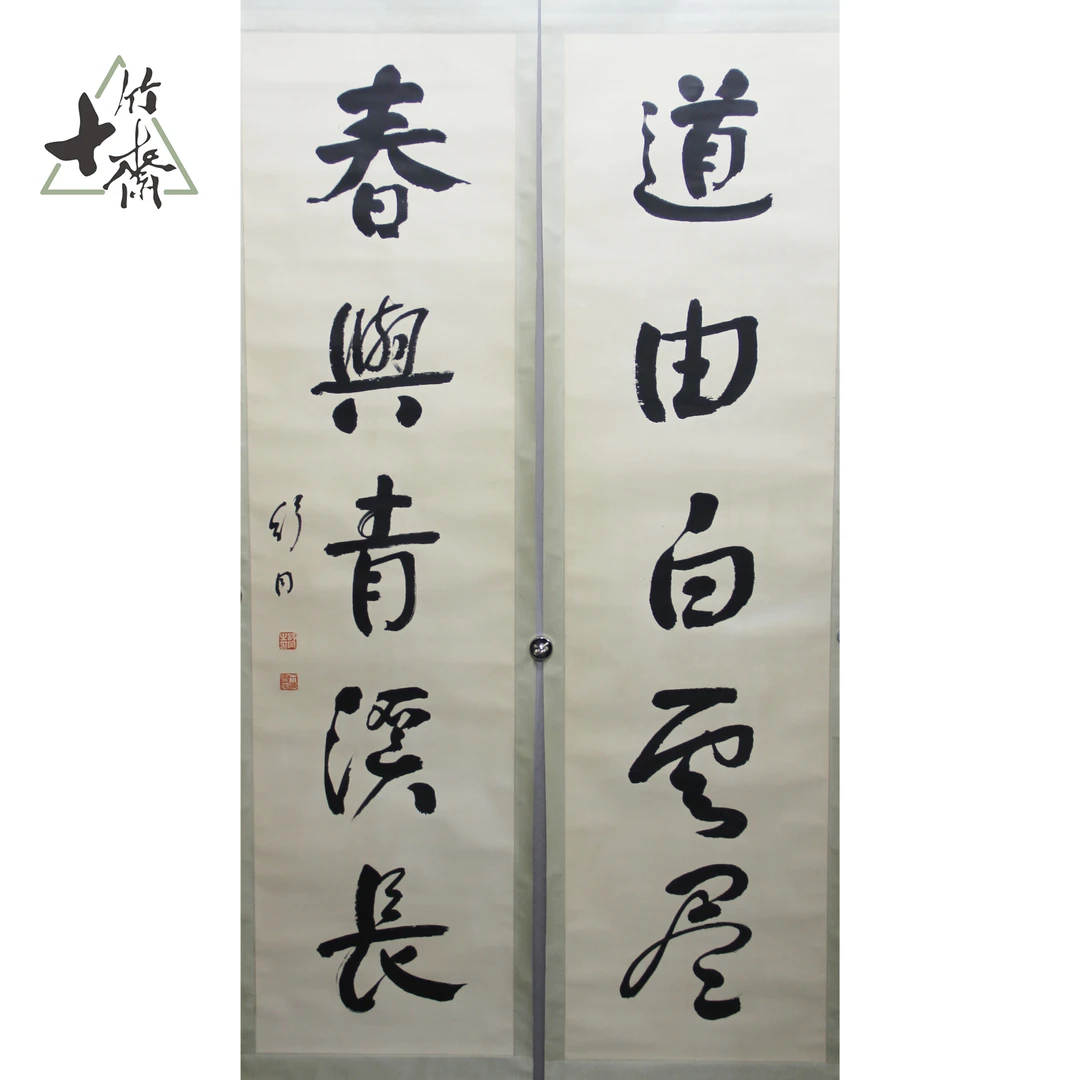 道由白雲盡
春與青溪長
舒同
十竹齋